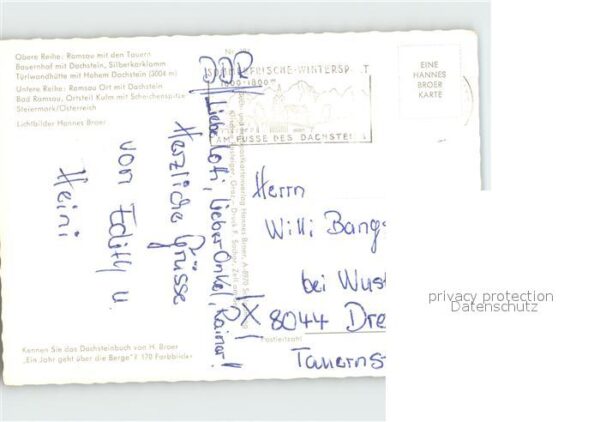 Obere Reihe: Ramsau mit den Tauern
Bauernhof mit Dachstein, Silberkarklamm
Türlwandhütte mit Hohem Dachstein (3004 m)
Untere Reihe: Ramsau Ort mit Dachstein
Bad Ramsau, Ortsteil Kulm mit Scheichenspitze
Steiermark/Österreich
Lichtbilder Hannes Broer
EINE
HANNES
BROER
KARTE
SOMMERFRISCHE-WINTERSPORT
AM FUSSE DES DACHSTEIN
DDR
Liebe Loti, lieber Onkel, Rainer!
Herzliche Grüsse
von Edith u.
Heini
Herrn
Willi Bang
bei Wust
X 8044 Dre
Postleitzahl
Tauernst
Kennen Sie das Dachsteinbuch von H. Broer
„Ein Jahr geht über die Berge"? 170 Farbbilder
privacy protection
Datenschutz